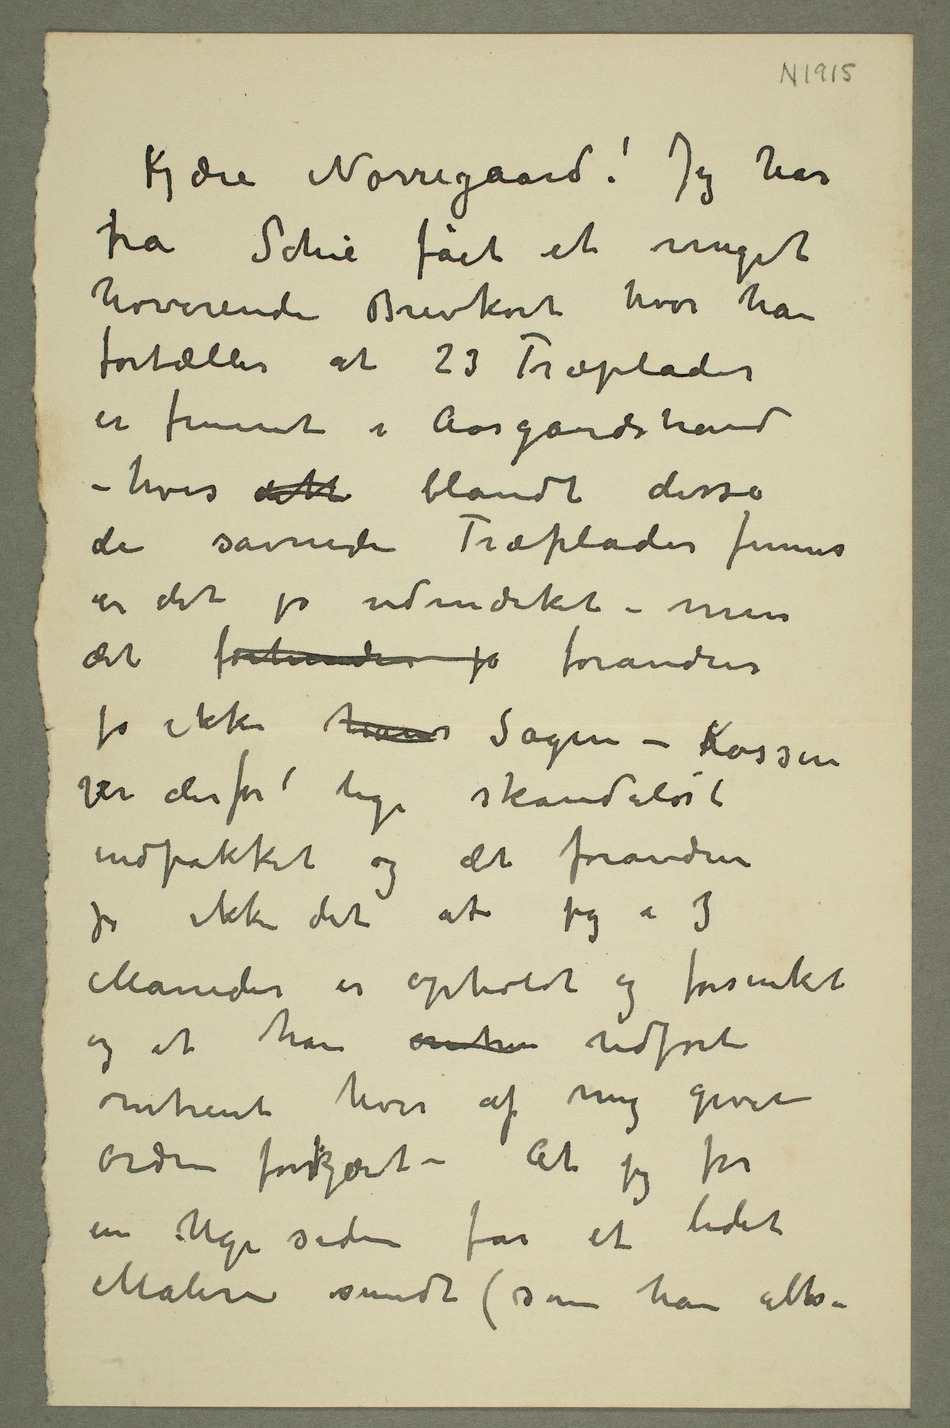 N1915
Kjære Nørregaard! Jeg har
fra Schie fået et meget
hoverende Brevkort hvor han
fortæller at 23 Træplader
er funnet i Aasgaardstrand
– hvis dette blandt disse
de savnede Træplader finnes
er det jo udmærket – men
det forhindrer jo forandrer
jo ikke hans Sagen – Kassen
er derfor lige skandaløst
indpakket og det forandrer
jo ikke det at jeg i 3
Maneder er opholdt og forsinket
og at han omtre udført
omtrent hver af mig givet
ordre forkjært – At jeg for
en Uge siden får et lidet
Maleri sendt (som han altså